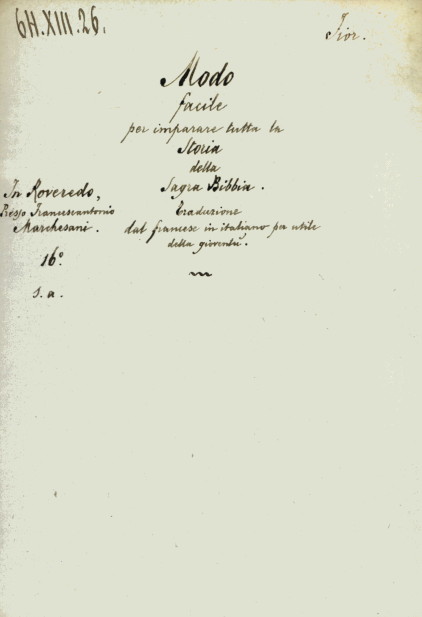 6H.XIII.26.
Fior.
Modo
facile
per imparare tutta la
Storia
della
Sagra Bibbia.
Traduzione
dal francese in italiano per utile
della gioventù.
In Roveredo,
Presso Francescantonio
Marchesani.
16º.
s. a.